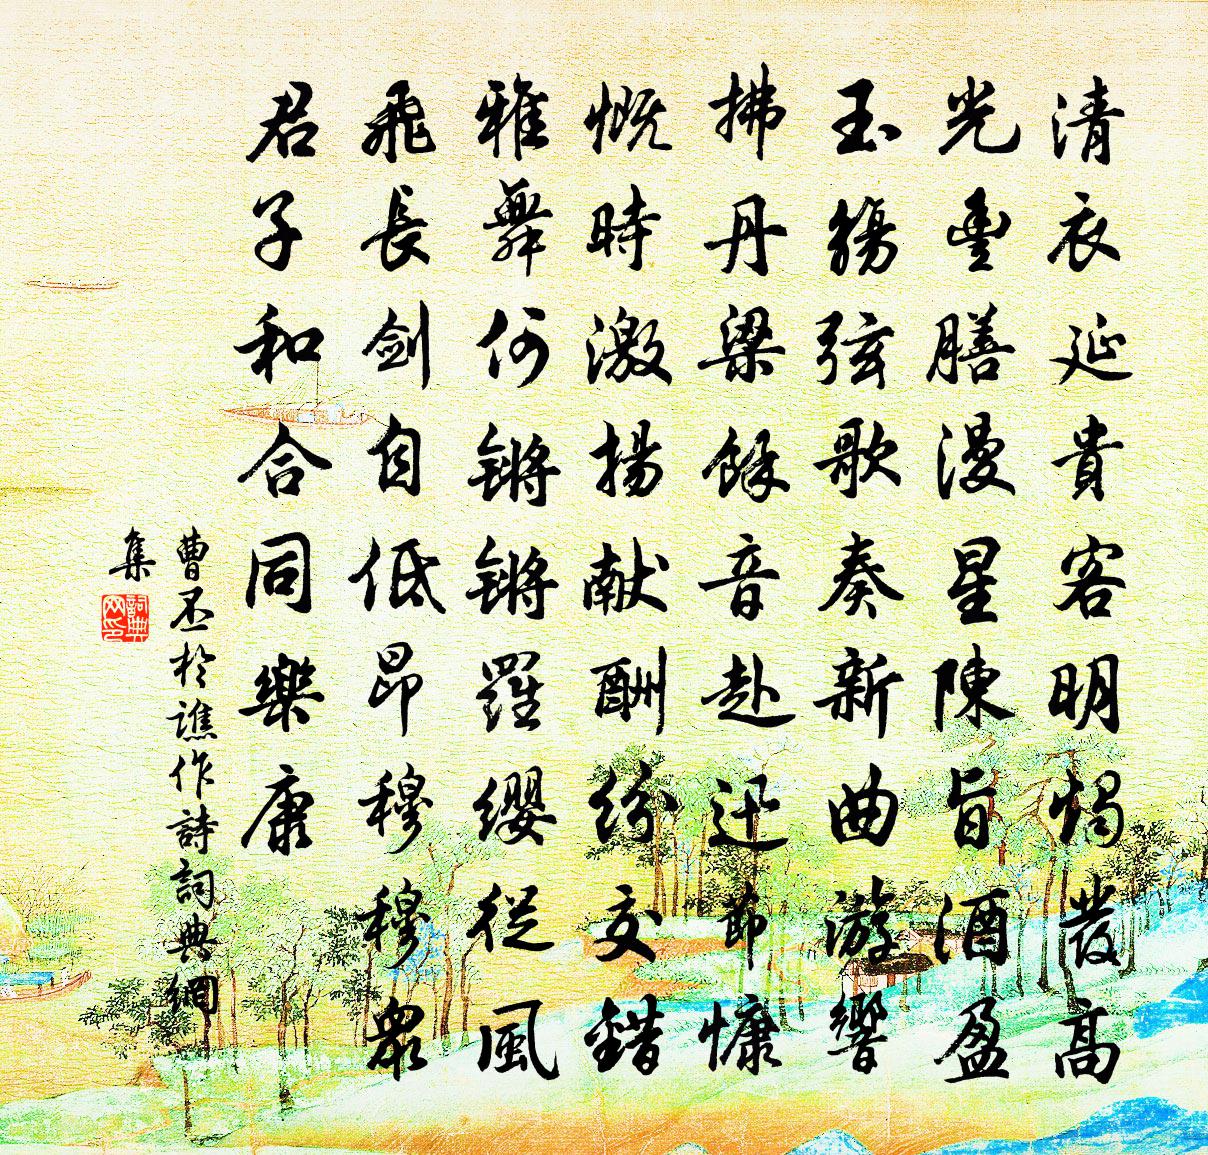 清衣延貴客明燭發高
光豊膳漫星陳旨酒盈
玉觴弦歌奏新曲游響
拂丹梁餘音赴迅節慷
慨時激揚献酬紛交錯
雅舞何锵锵羅纓從風
飛長劍自低昂穆穆衆
君子和合同樂康
曹丕於譙作詩詞典網
集
詞典
网印